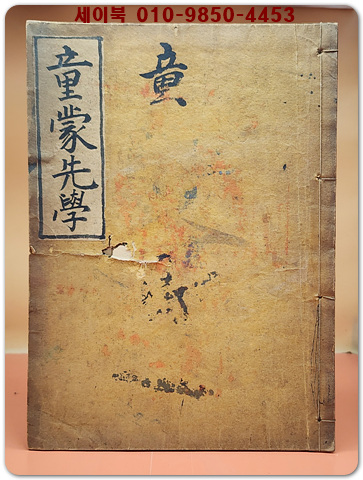 세이북 010-9850-4453
童蒙先學
童